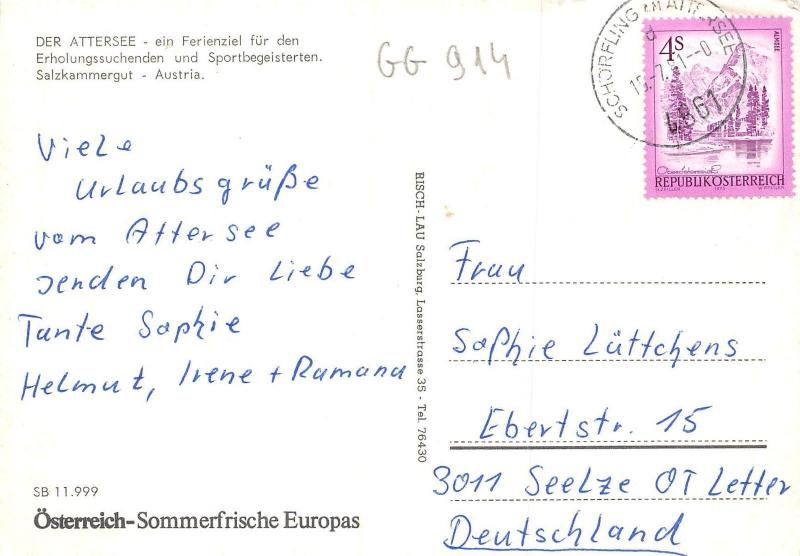 DER ATTERSEE - ein Ferienziel für den
Erholungssuchenden und Sportbegeisterten.
Salzkammergut - Austria.
GG 914
Viele
Urlaubsgrüße
vom Attersee
senden Dir Liebe
Tante Sophie
Helmut, Irene + Ramana
SB 11.999
Österreich-Sommerfrische Europas
RISCH-LAU Salzburg, Lasserstrasse 35 - Tel. 76430
SCHÖRFLING AM ATTERSEE
4861
4S
ALMSEE
Oberösterreich
REPUBLIK ÖSTERREICH
Frau
Sophie Lüttchens
Ebertstr. 15
3011 Seelze OT Letter
Deutschland